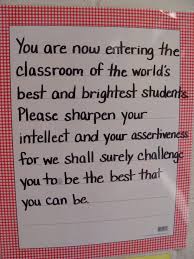 You are now entering the
classroom of the world's
best and brightest students.
Please sharpen your
intellect and your assertiveness
for we shall surely challenge
you to be the best that
you can be.